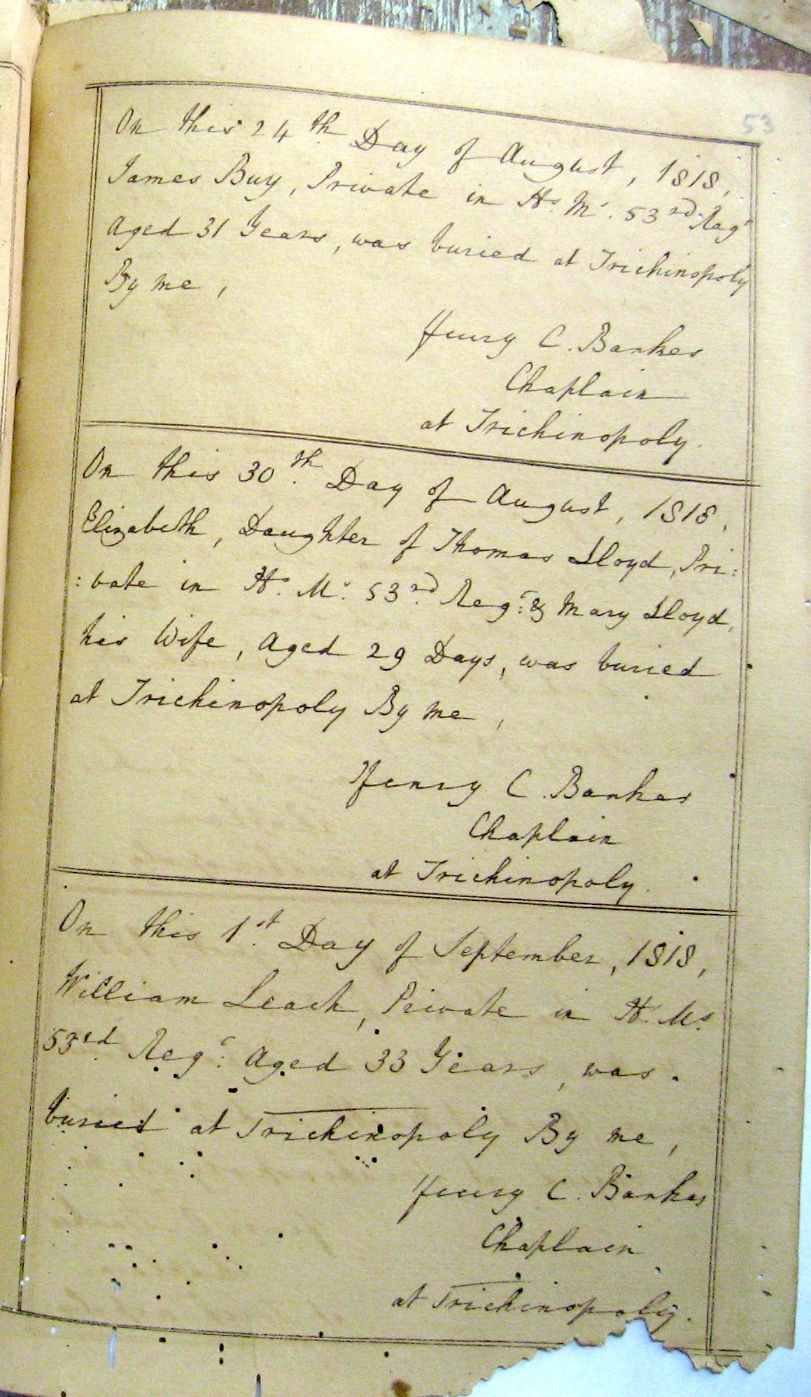 53
On this 24th Day of August, 1818,
James Buy, Private in H.s M.s 53rd Regt
Aged 31 Years, was buried at Trichinopoly
By me,
Henry C. Bankes
Chaplain
at Trichinopoly.
On this 30th Day of August, 1818,
Elizabeth, Daughter of Thomas Lloyd, Pri:
:vate in H.s M.s 53rd Regt: & Mary Lloyd,
his Wife, Aged 29 Days, was buried
at Trichinopoly By me,
Henry C. Bankes
Chaplain
at Trichinopoly.
On this 1st Day of September, 1818,
William Leach, Private in H. Ms
53rd Regt: Aged 33 Years, was
buried at Trichinopoly By me,
Henry C. Bankes
Chaplain
at Trichinopoly.